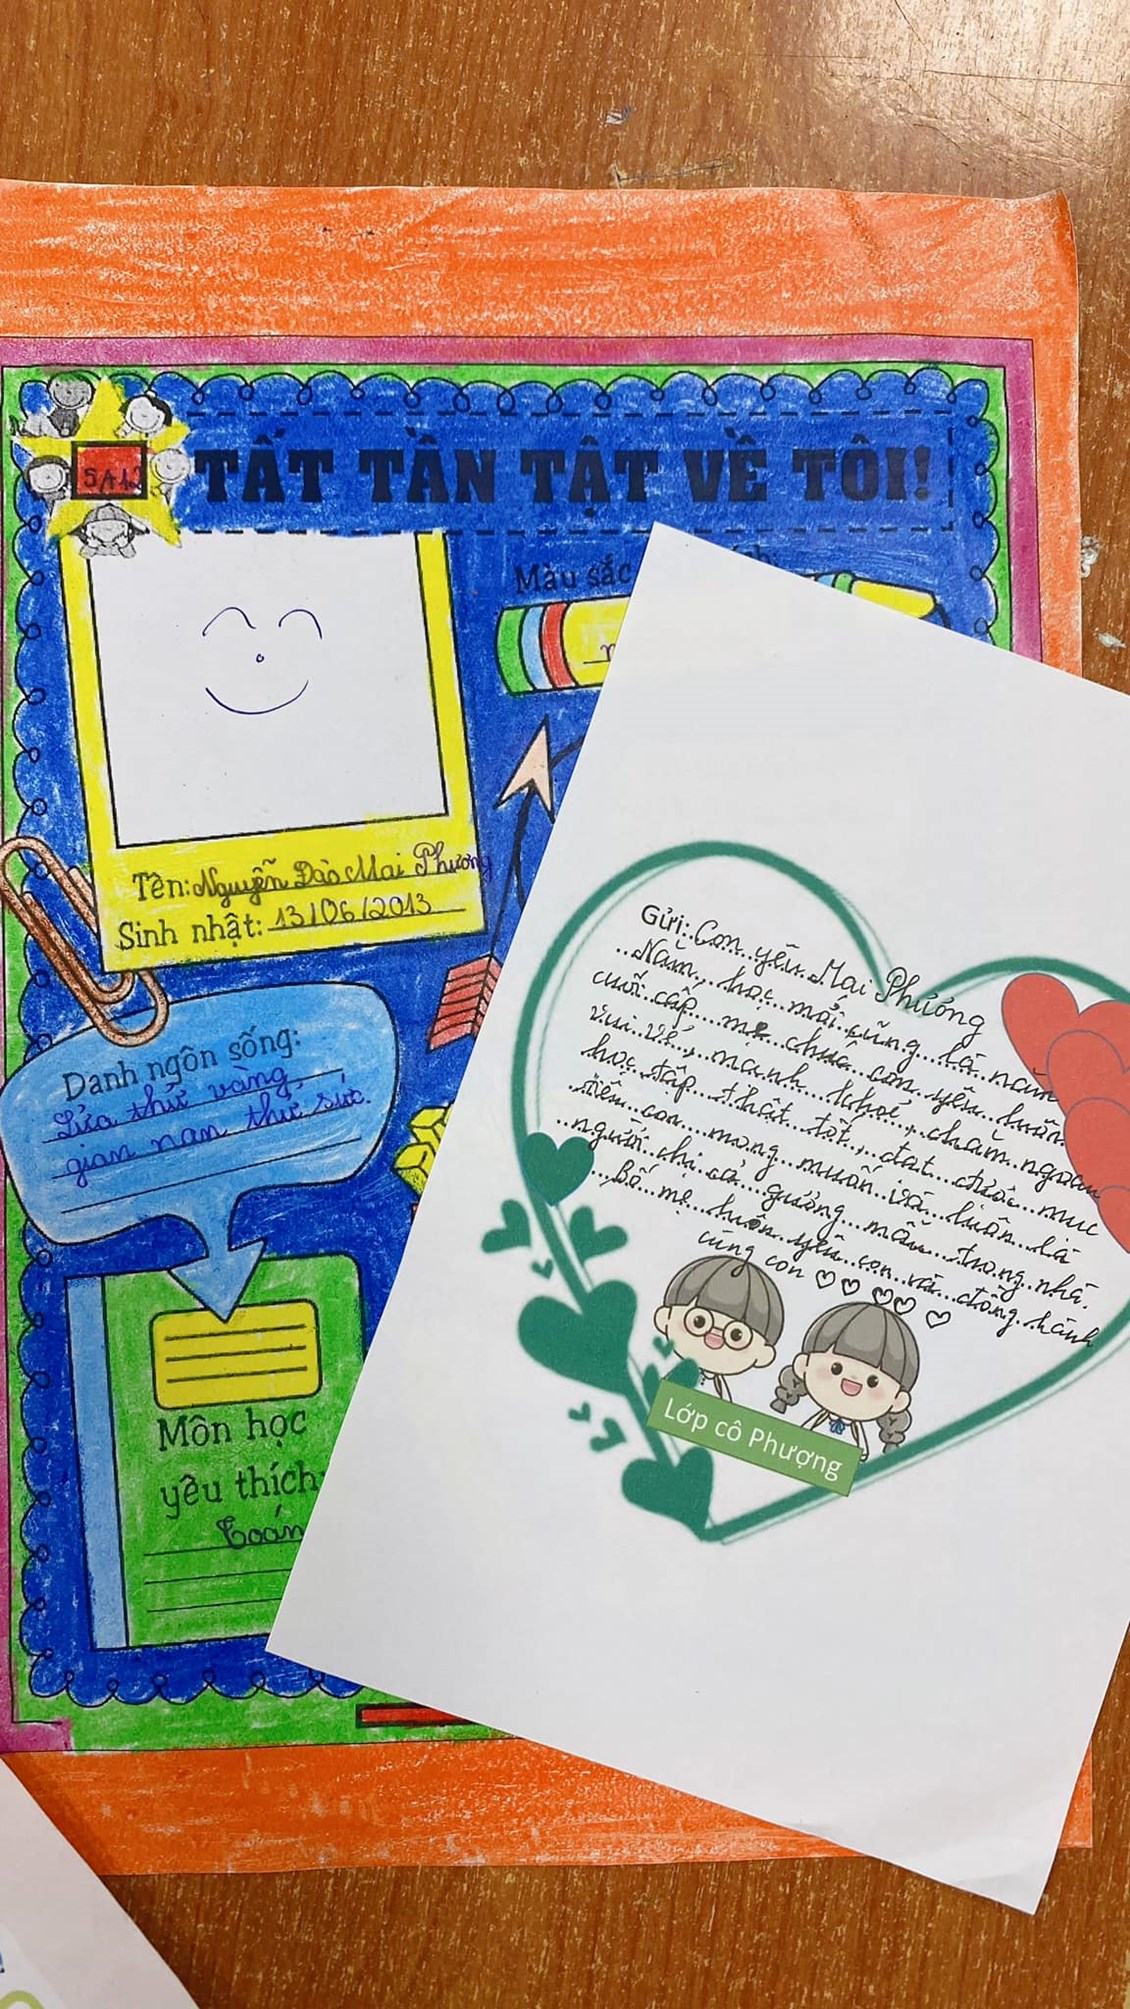 5A12
TẤT TẦN TẬT VỀ TÔI!
Màu sắc
Tên: Nguyễn Đào Mai Phương
Sinh nhật: 13/06/2013
Danh ngôn sống:
Lửa thử vàng,
gian nan thử sức.
Môn học
yêu thích:
Toán
Gửi: Con yêu Mai Phương
Năm học mới cũng là năm
cuối cấp mẹ chúc con yêu luôn
vui vẻ, mạnh khoẻ, chăm ngoan
học tập thật tốt, đạt được mục
tiêu con mong muốn và luôn là
người chị cả gương mẫu trong nhà.
Bố mẹ luôn yêu con và đồng hành
cùng con
Lớp cô Phượng